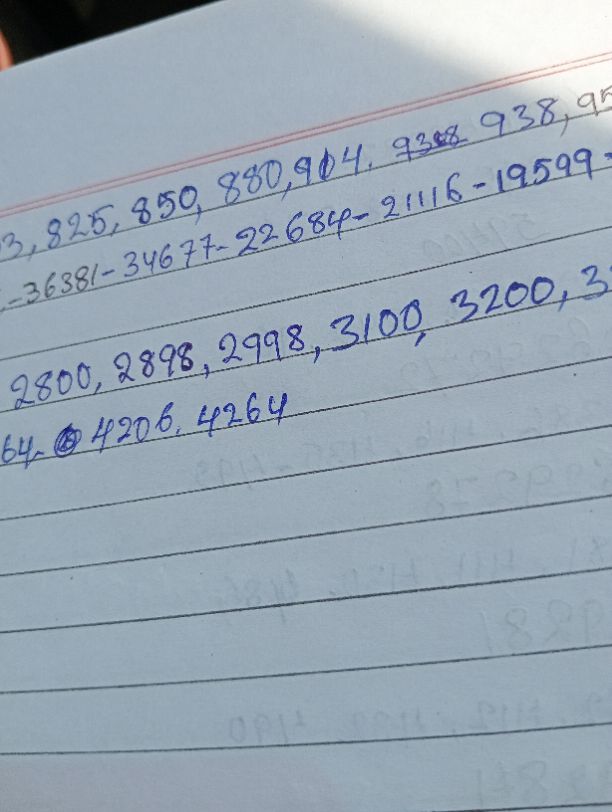 3, 825, 850, 880, 914, 938, 95
-36381-34677-22684-21116-19599-
2800, 2898, 2998, 3100, 3200, 3
64- 4206, 4264